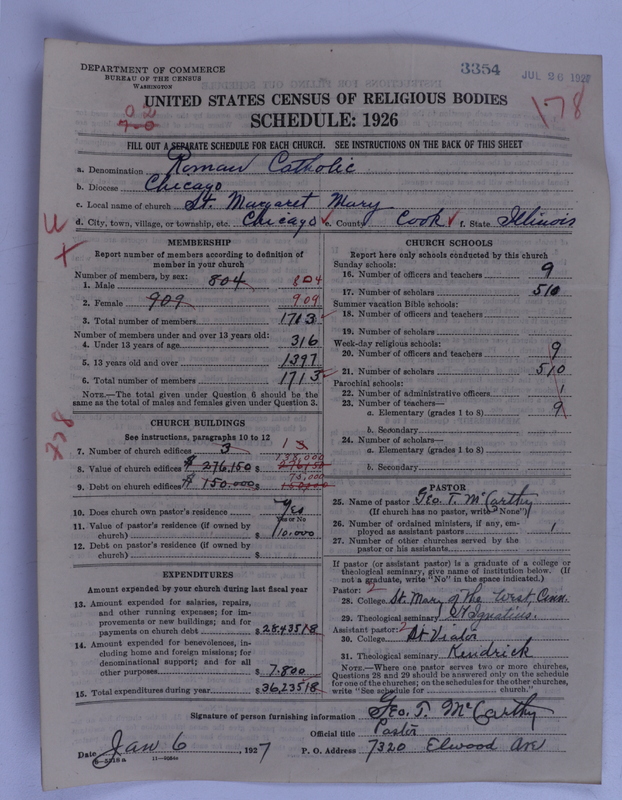 DEPARTMENT OF COMMERCE
BUREAU OF THE CENSUS
WASHINGTON
3354 JUL 26 1927
178
0 2
7-0
UNITED STATES CENSUS OF RELIGIOUS BODIES
SCHEDULE: 1926
FILL OUT A SEPARATE SCHEDULE FOR EACH CHURCH. SEE INSTRUCTIONS ON THE BACK OF THIS SHEET
a. Denomination Roman Catholic
b. Diocese Chicago
c. Local name of church St. Margaret Mary
d. City, town, village, or township, etc. Chicago e. County Cook f. State Illinois
MEMBERSHIP
Report number of members according to definition of
member in your church
Number of members, by sex:
1. Male 804 804
2. Female 909 909
3. Total number of members 1713
Number of members under and over 13 years old:
4. Under 13 years of age 316
5. 13 years old and over 1397
6. Total number of members 1713
NOTE.—The total given under Question 6 should be the
same as the total of males and females given under Question 3.
CHURCH BUILDINGS
See instructions, paragraphs 10 to 12
7. Number of church edifices 3 1 3
138,000
8. Value of church edifices $ 276,150 $ 276,150
75,000
9. Debt on church edifices $ 150,000 $ 150,000
10. Does church own pastor's residence Yes
Yes or No
11. Value of pastor's residence (if owned by
church) $ 10,000
12. Debt on pastor's residence (if owned by
church) $
EXPENDITURES
Amount expended by your church during last fiscal year
13. Amount expended for salaries, repairs,
and other running expenses; for im-
provements or new buildings; and for
payments on church debt $ 28,435 18
14. Amount expended for benevolences, in-
cluding home and foreign missions; for
denominational support; and for all
other purposes $ 7,800
15. Total expenditures during year $ 36,235 18
CHURCH SCHOOLS
Report here only schools conducted by this church
Sunday schools:
16. Number of officers and teachers 9
17. Number of scholars 510
Summer vacation Bible schools:
18. Number of officers and teachers
19. Number of scholars
Week-day religious schools:
20. Number of officers and teachers 9
21. Number of scholars 510
Parochial schools:
22. Number of administrative officers 1
23. Number of teachers—
a. Elementary (grades 1 to 8) 9
b. Secondary
24. Number of scholars—
a. Elementary (grades 1 to 8)
b. Secondary
PASTOR
25. Name of pastor Geo. T. McCarthy
(If church has no pastor, write "None")
26. Number of ordained ministers, if any, em-
ployed as assistant pastors 1
27. Number of other churches served by the
pastor or his assistants
If pastor (or assistant pastor) is a graduate of a college or
theological seminary, give name of institution below. (If
not a graduate, write "No" in the space indicated.)
Pastor: 2
28. College St. Mary of the West, Cinn.
29. Theological seminary St Ignatius.
Assistant pastor: 2
30. College St Viator
31. Theological seminary Kendrick
NOTE.—Where one pastor serves two or more churches,
Questions 28 and 29 should be answered only on the schedule
for one of the churches; on the schedules for the other churches,
write "See schedule for church."
Signature of person furnishing information Geo. T. McCarthy
Official title Pastor
Date Jan 6, 1927 P. O. Address 7320 Elwood Ave